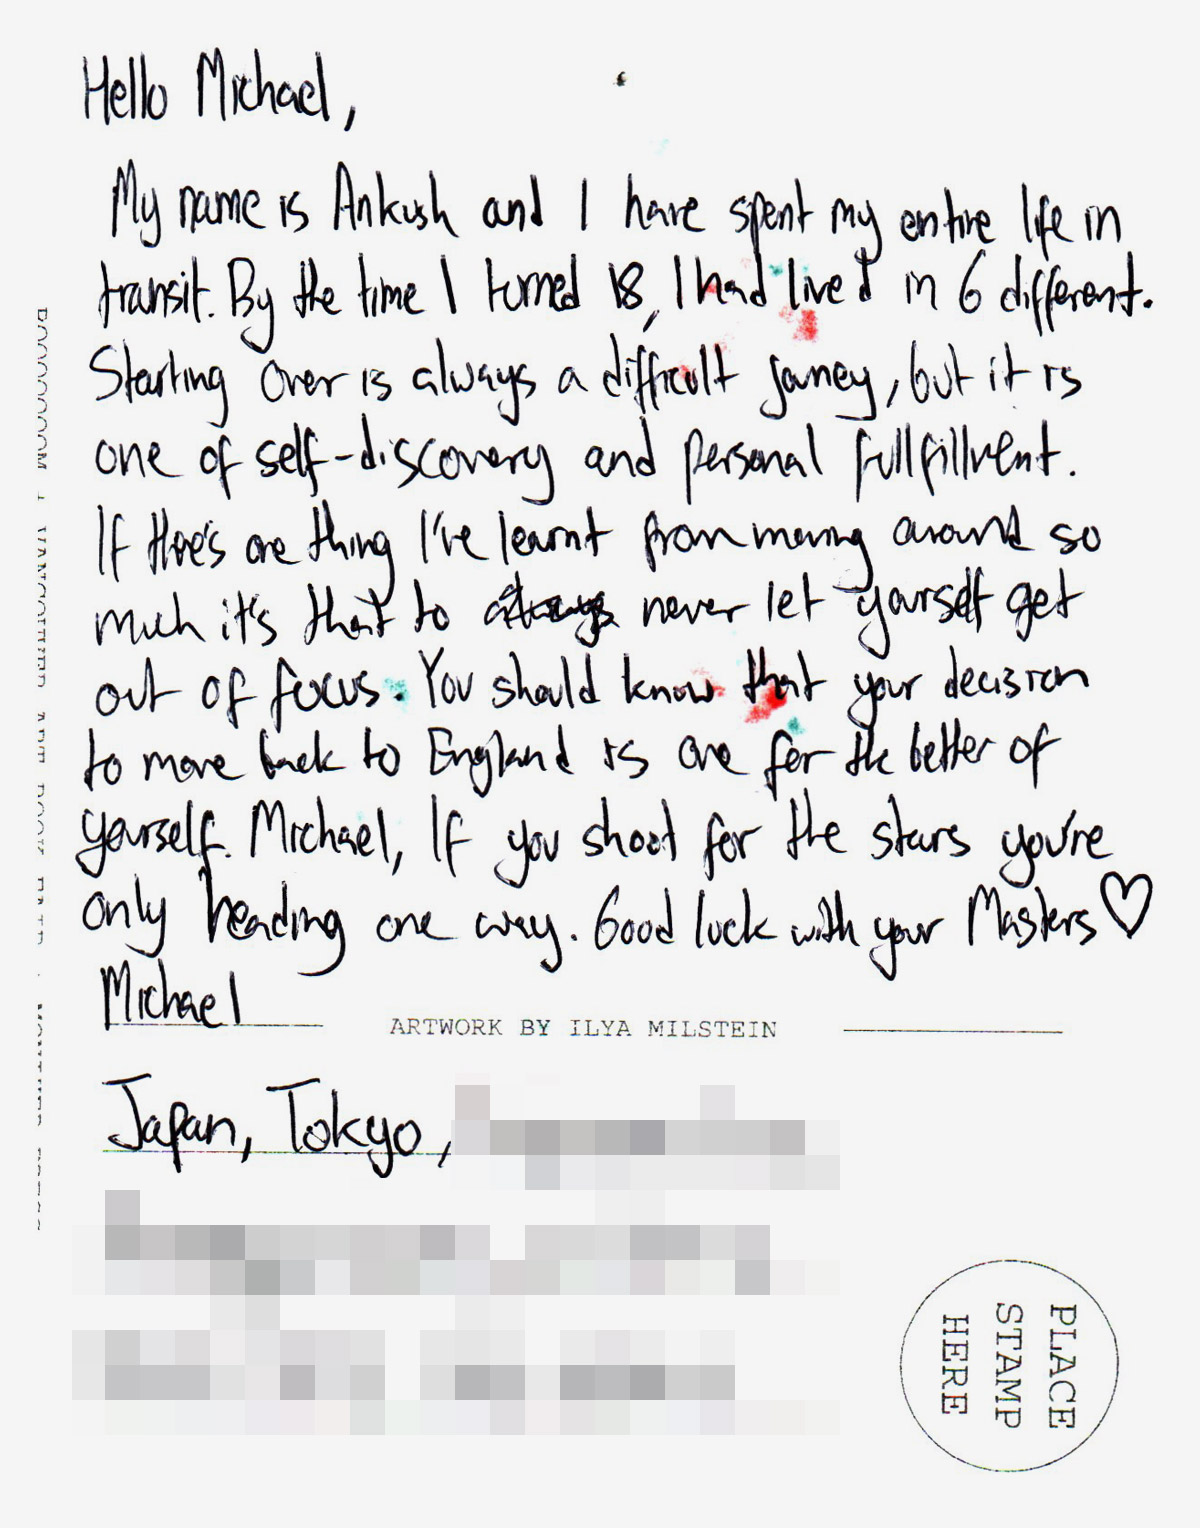 Hello Michael,
My name is Ankush and I have spent my entire life in
transit. By the time I turned 18, I had lived in 6 different.
Starting over is always a difficult jouney, but it is
one of self-discovery and personal fullfillment.
If there's one thing I've learnt from moving around so
much it's that to always never let yourself get
out of focus. You should know that your decision
to move back to England is one for the better of
yourself. Michael, If you shoot for the stars you're
only heading one way. Good luck with your Masters ♡
Michael
ARTWORK BY ILYA MILSTEIN
Japan, Tokyo,
PLACE
STAMP
HERE